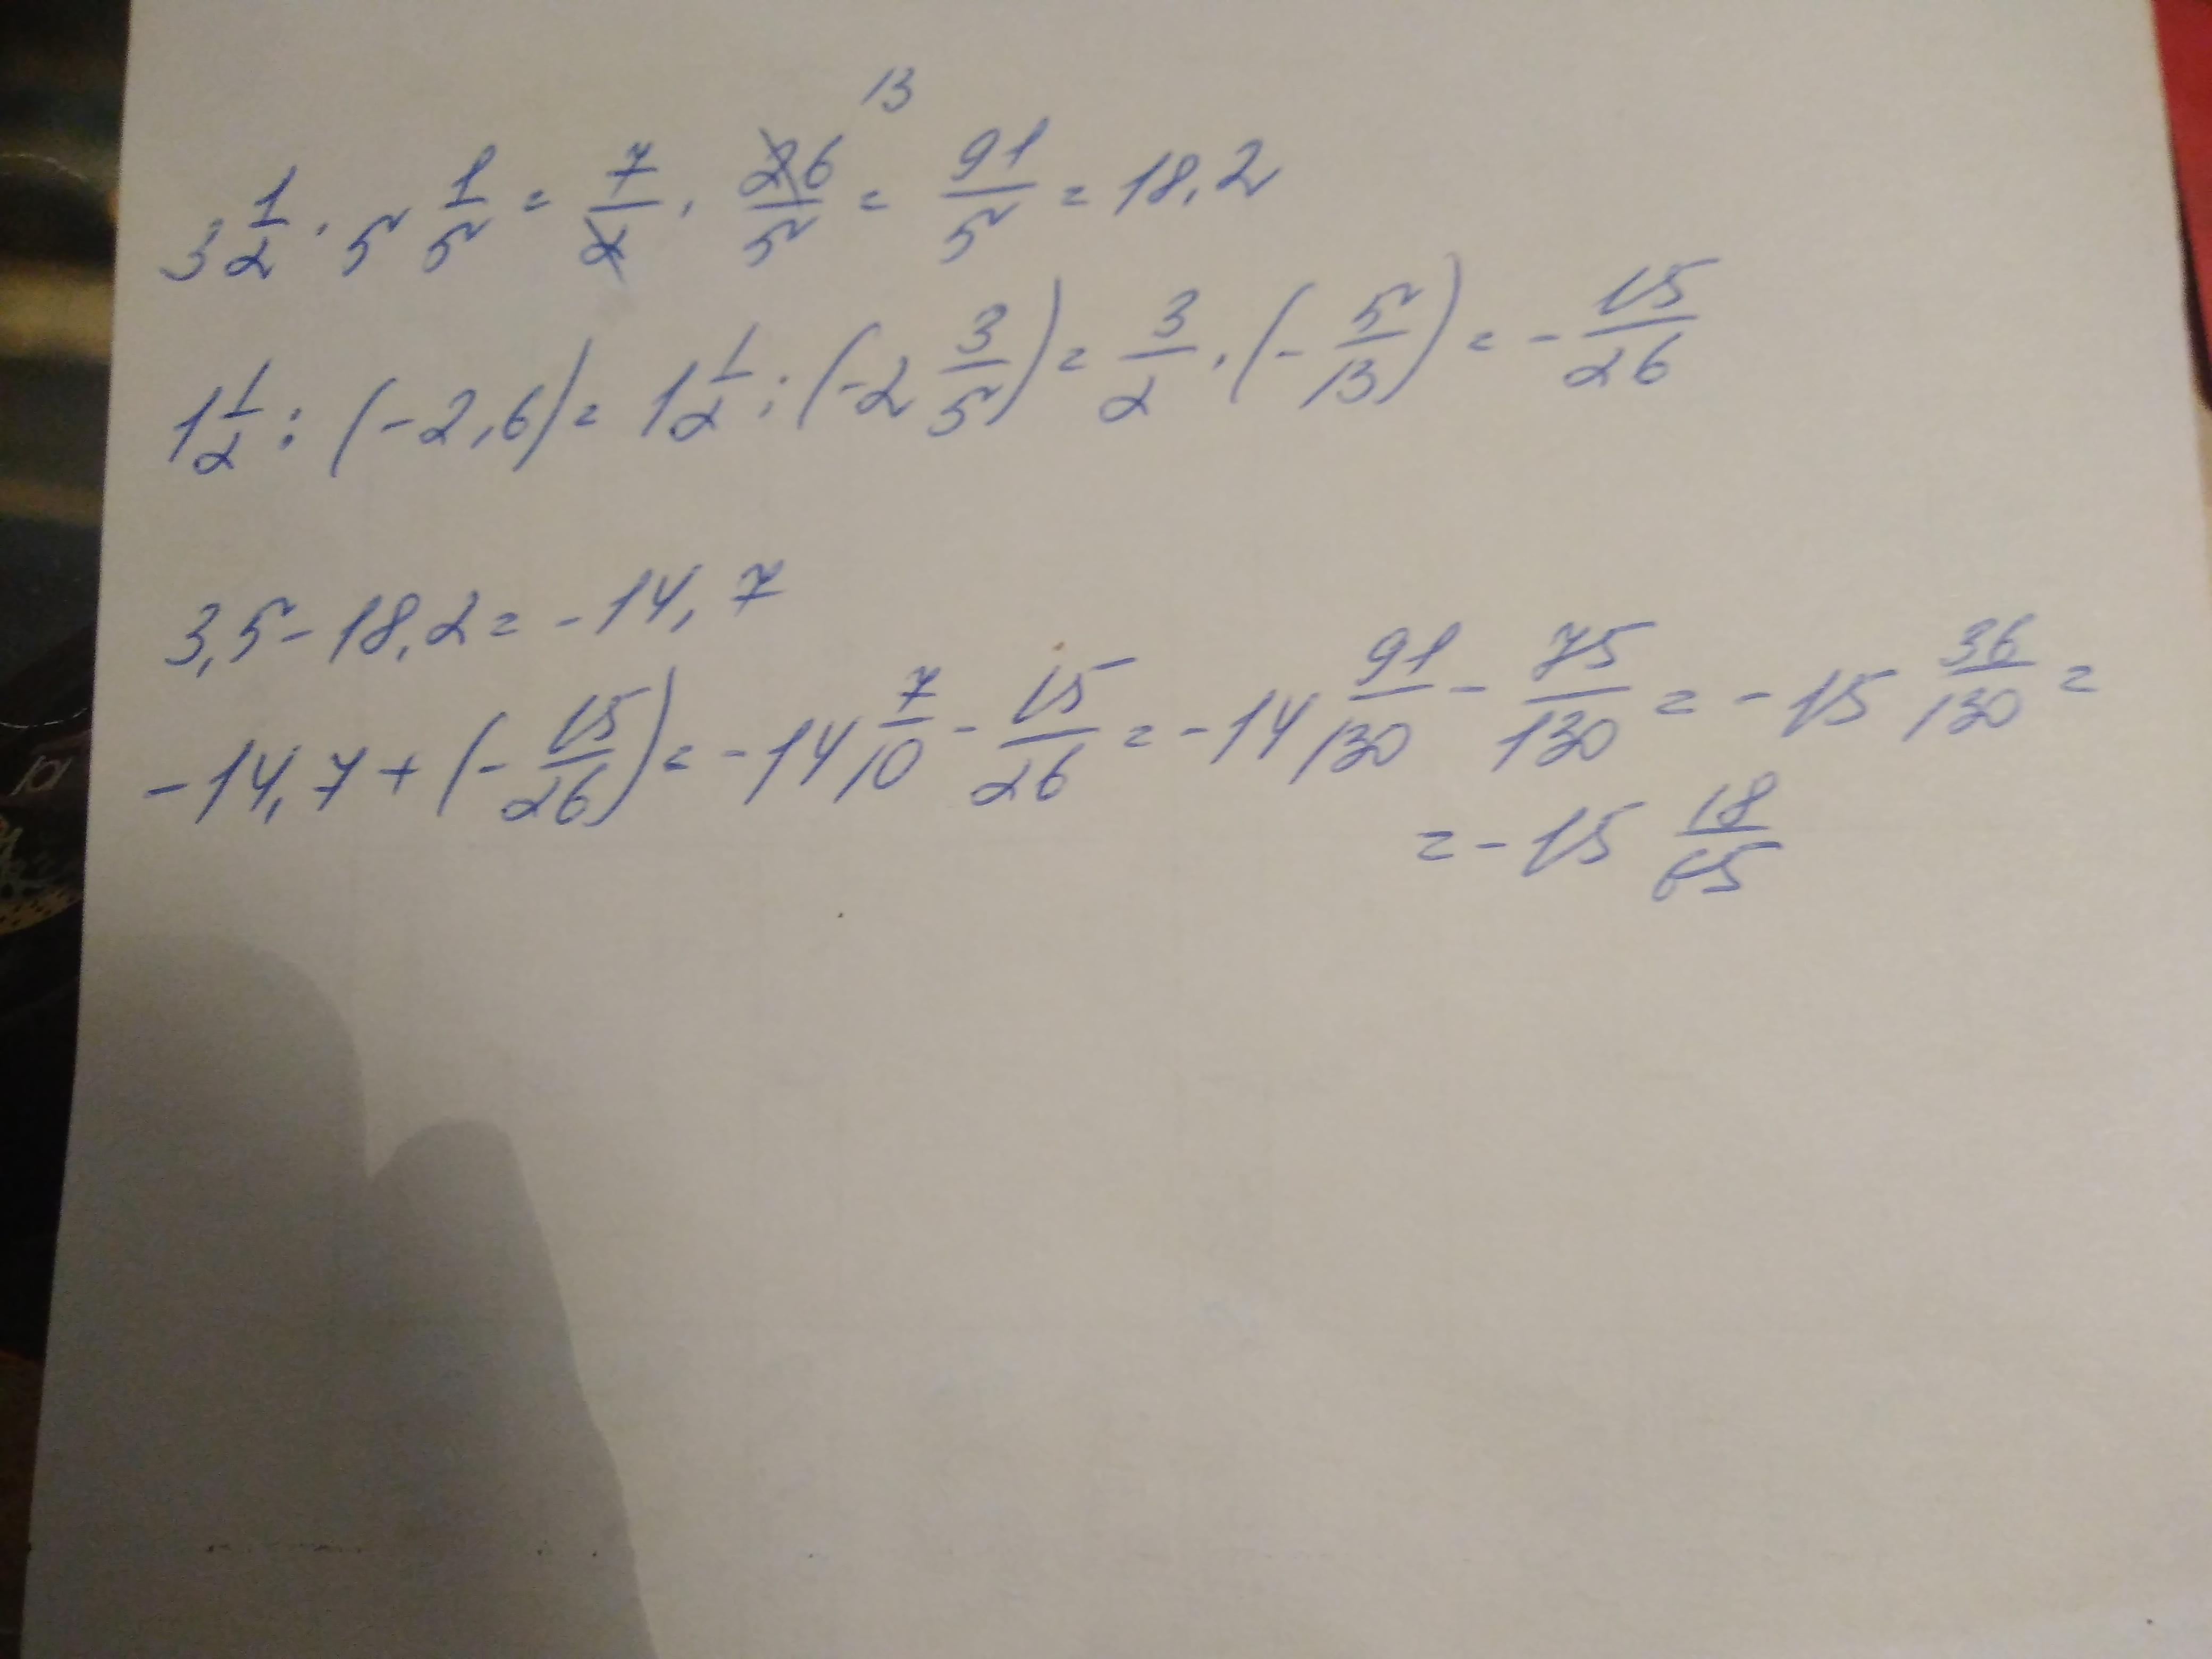 3 1/2 · 5 1/5 = 7/2 · 26/5 13 = 91/5 = 18,2
1 1/2 : (-2,6) = 1 1/2 : (-2 3/5) = 3/2 · (- 5/13) = - 15/26
3,5 - 18,2 = - 14,7
-14,7 + (- 15/26) = -14 7/10 - 15/26 = -14 91/130 - 75/130 = - 15 36/130 =
= - 15 18/65